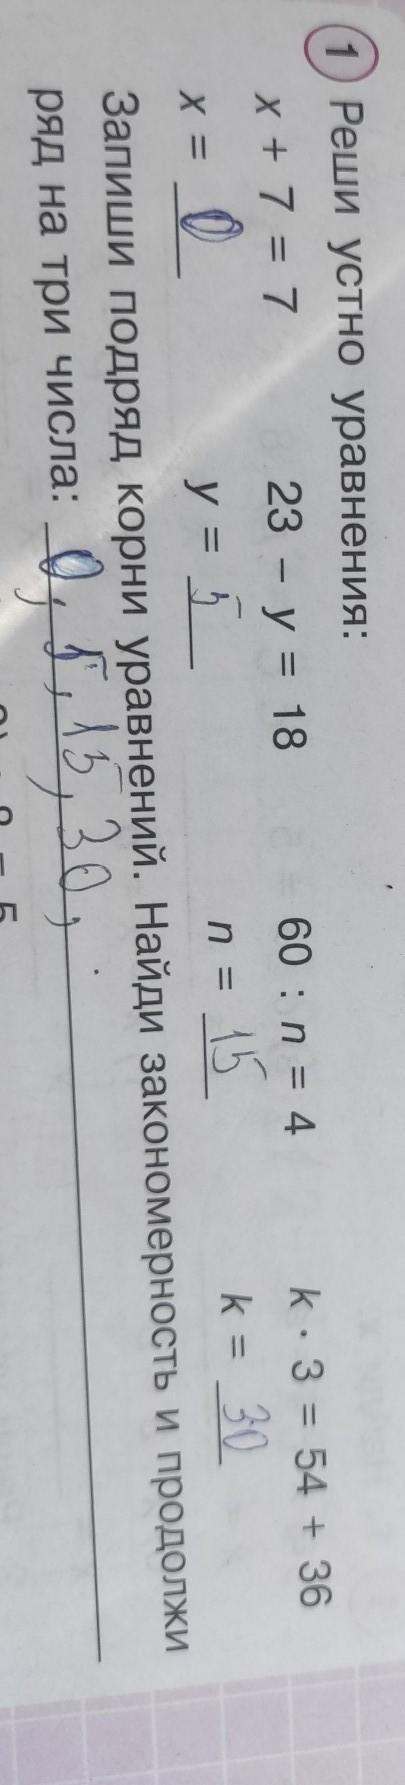 1 Реши устно уравнения:
x + 7 = 7 23 − y = 18 60 : n = 4 k · 3 = 54 + 36
x = 0 y = 5 n = 15 k = 30
Запиши подряд корни уравнений. Найди закономерность и продолжи
ряд на три числа: 0, 5, 15, 30,